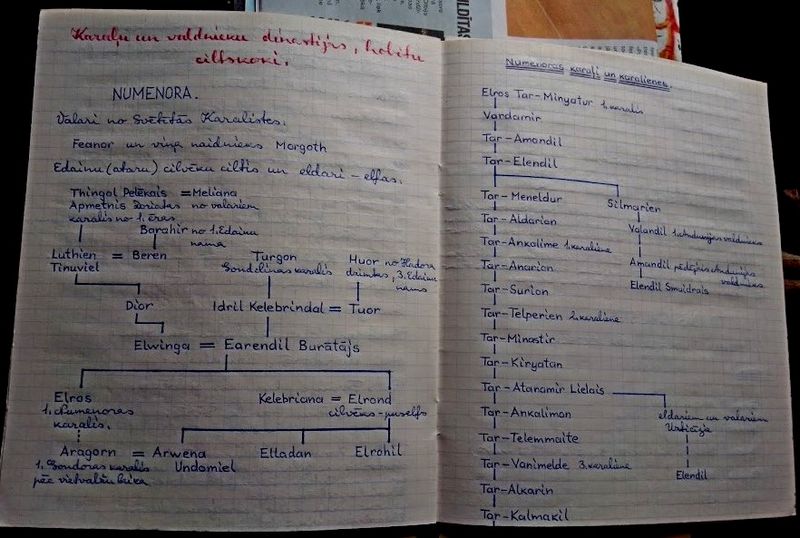 Karaļu un valdnieku dinastijas, hobitu
ciltskoki.
NUMENORA.
Valari no Svētītās Karalistes.
Feanor un viņa naidnieks Morgoth
Edainu (ataru) cilvēku ciltis un eldari – elfas.
Thingol Pelēkais = Meliana
Apmetnis no valariem
karalis no 1. ēras
Barahir no 1. Edainu
nama
Turgon
Gondolinas karalis
Huor no Hadora
dzimtas, 3. Edainu
nams
Luthien = Beren
Tinuviel
Dior
Idril Kelebrindal = Tuor
Elwinga = Earendil Burātājs
Elros
1. Numenoras
karalis.
Kelebriana = Elrond
cilvēks-puselfs
Aragorn = Arwena
Undomiel
Elladan
Elrohil
1. Gondoras karalis
pēc
Numenoras karaļi un karalienes.
Elros Tar-Minyatur 1. karalis
Vardamir
Tar-Amandil
Tar-Elendil
Tar-Meneldur
Silmarien
Tar-Aldarian
Valandil 1. Andunijas valdnieks
Tar-Ankalime 1. karaliene
Tar-Anarion
Amandil pēdējais Andunijas
valdnieks
Tar-Surion
Elendil
Tar-Telperien 2. karaliene
Tar-Minastir
Tar-Kiryatan
Tar-Atanamir Lielais
Tar-Ankalimon
eldariem un valariem
Uzticīgie
Tar-Telemmaite
Tar-Vanimelde 3. karaliene
Elendil
Tar-Alkarin
Tar-Kalmakil